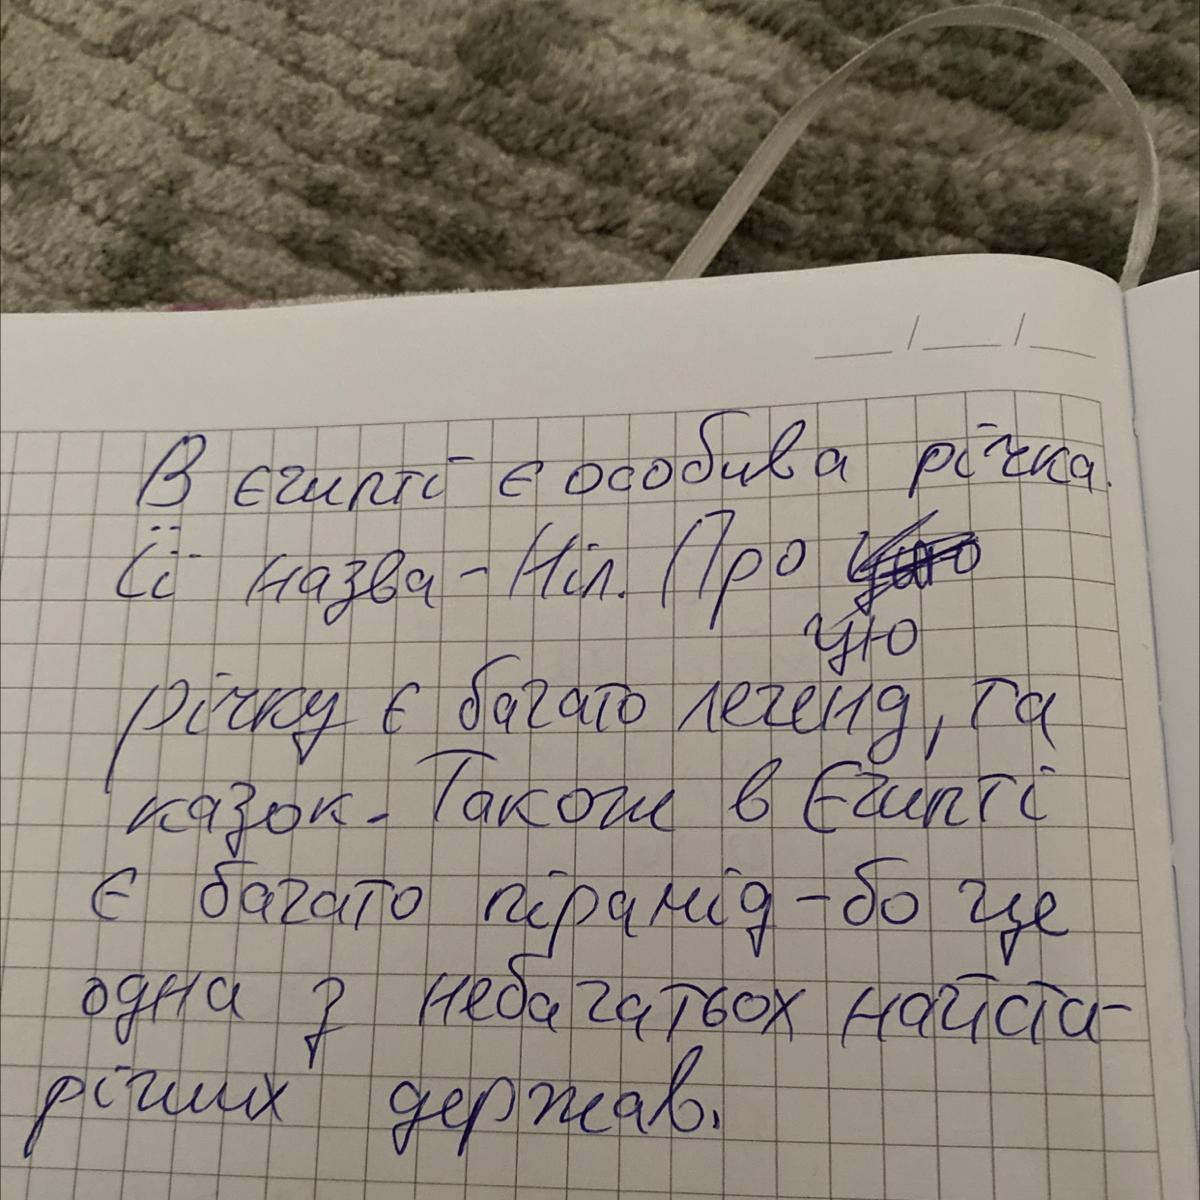 В єгипті є особива річка.
Її назва - Ніл. Про
цю
річку є багато легенд, та
казок. Також в Єгипті
є багато пірамід - бо це
одна з небагатьох найста-
річших держав.